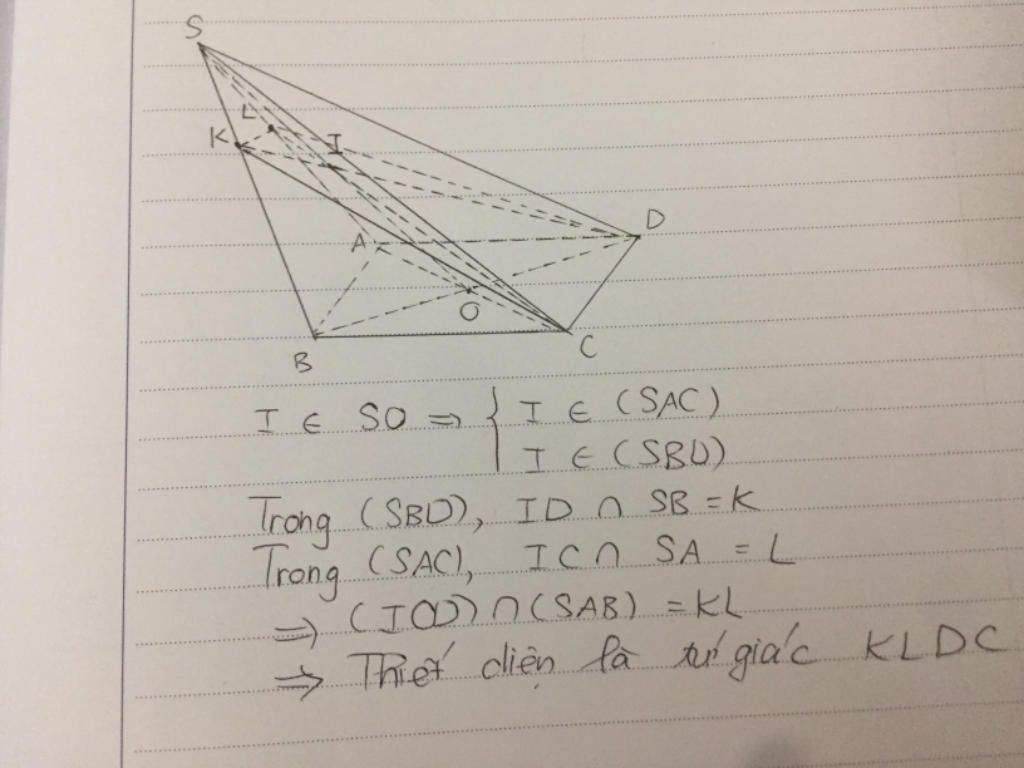 S
L
K
I
D
A
O
B
C
I ∈ SO ⇒ { I ∈ (SAC)
I ∈ (SBD)
Trong (SBD), ID ∩ SB = K
Trong (SAC), IC ∩ SA = L
⇒ (ICD) ∩ (SAB) = KL
⇒ Thiết diện là tứ giác KLDC